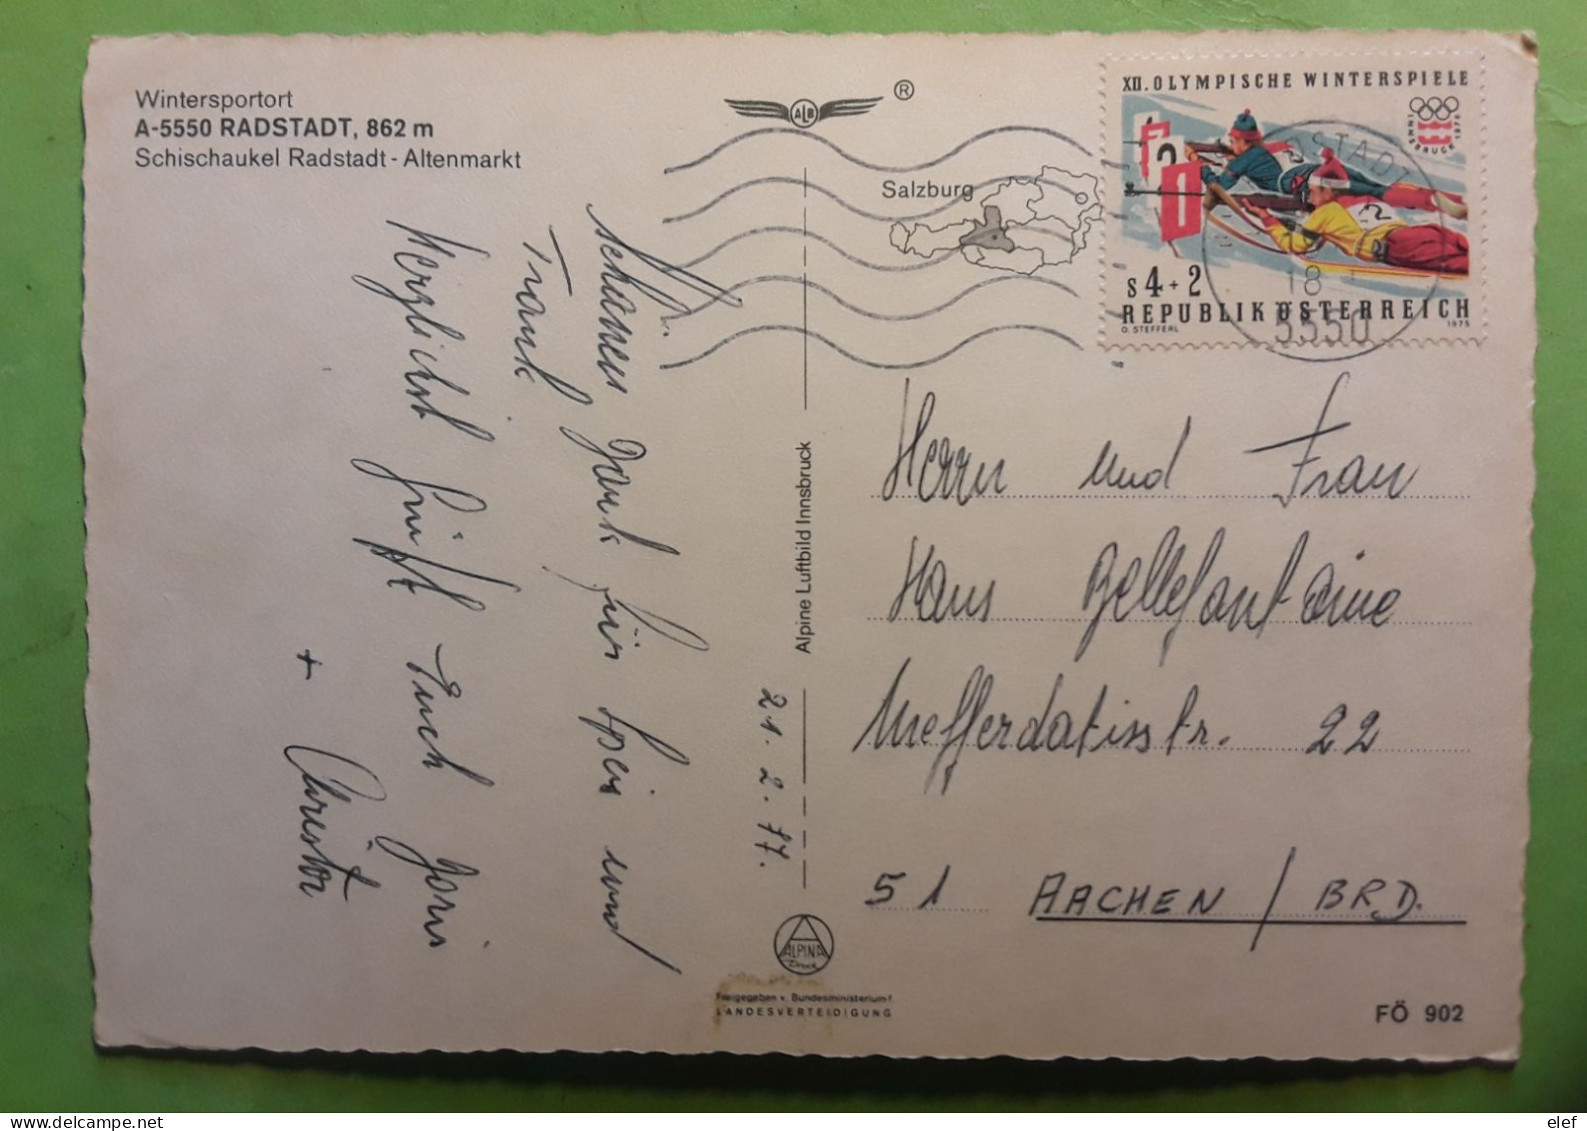 Wintersportort
A-5550 RADSTADT, 862 m
Schischaukel Radstadt - Altenmarkt
ALB
®
Salzburg
XII. OLYMPISCHE WINTERSPIELE
INNSBRUCK 1976
2
1
S 4 + 2
REPUBLIK ÖSTERREICH
O. STEFFERL
1975
18
5550
21. 2. 77.
schönen Dank für Speis und
Trank
Herzlichst grüßt Euch
+
Herrn und Frau
Hans Bellefontaine
Mefferdatisstr. 22
51 AACHEN / BRD.
Alpine Luftbild Innsbruck
ALPINA
Druck
Freigegeben v. Bundesministerium f.
LANDESVERTEIDIGUNG
FÖ 902
www.delcampe.net
elef